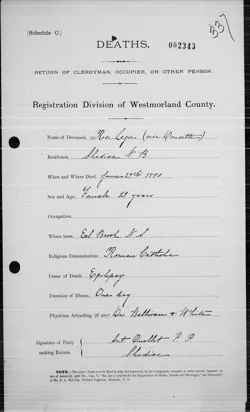 337
[Schedule C.]
002343
DEATHS.
RETURN OF CLERGYMAN, OCCUPIER, OR OTHER PERSON.
Registration Division of Westmorland County.
Name of Deceased,
Residence, Shediac N B
When and Where Died, June 29th 1890
Sex and Age, Female 29 years
Occupation,
Where born, Eel Brook N S
Religious Denomination, Roman Catholic
Cause of Death, Epilepsy
Duration of Illness, One day
Physician Attending, (if any) Drs & White
Signature of Party Ant Ouellet P. P.
making Return, Shediac